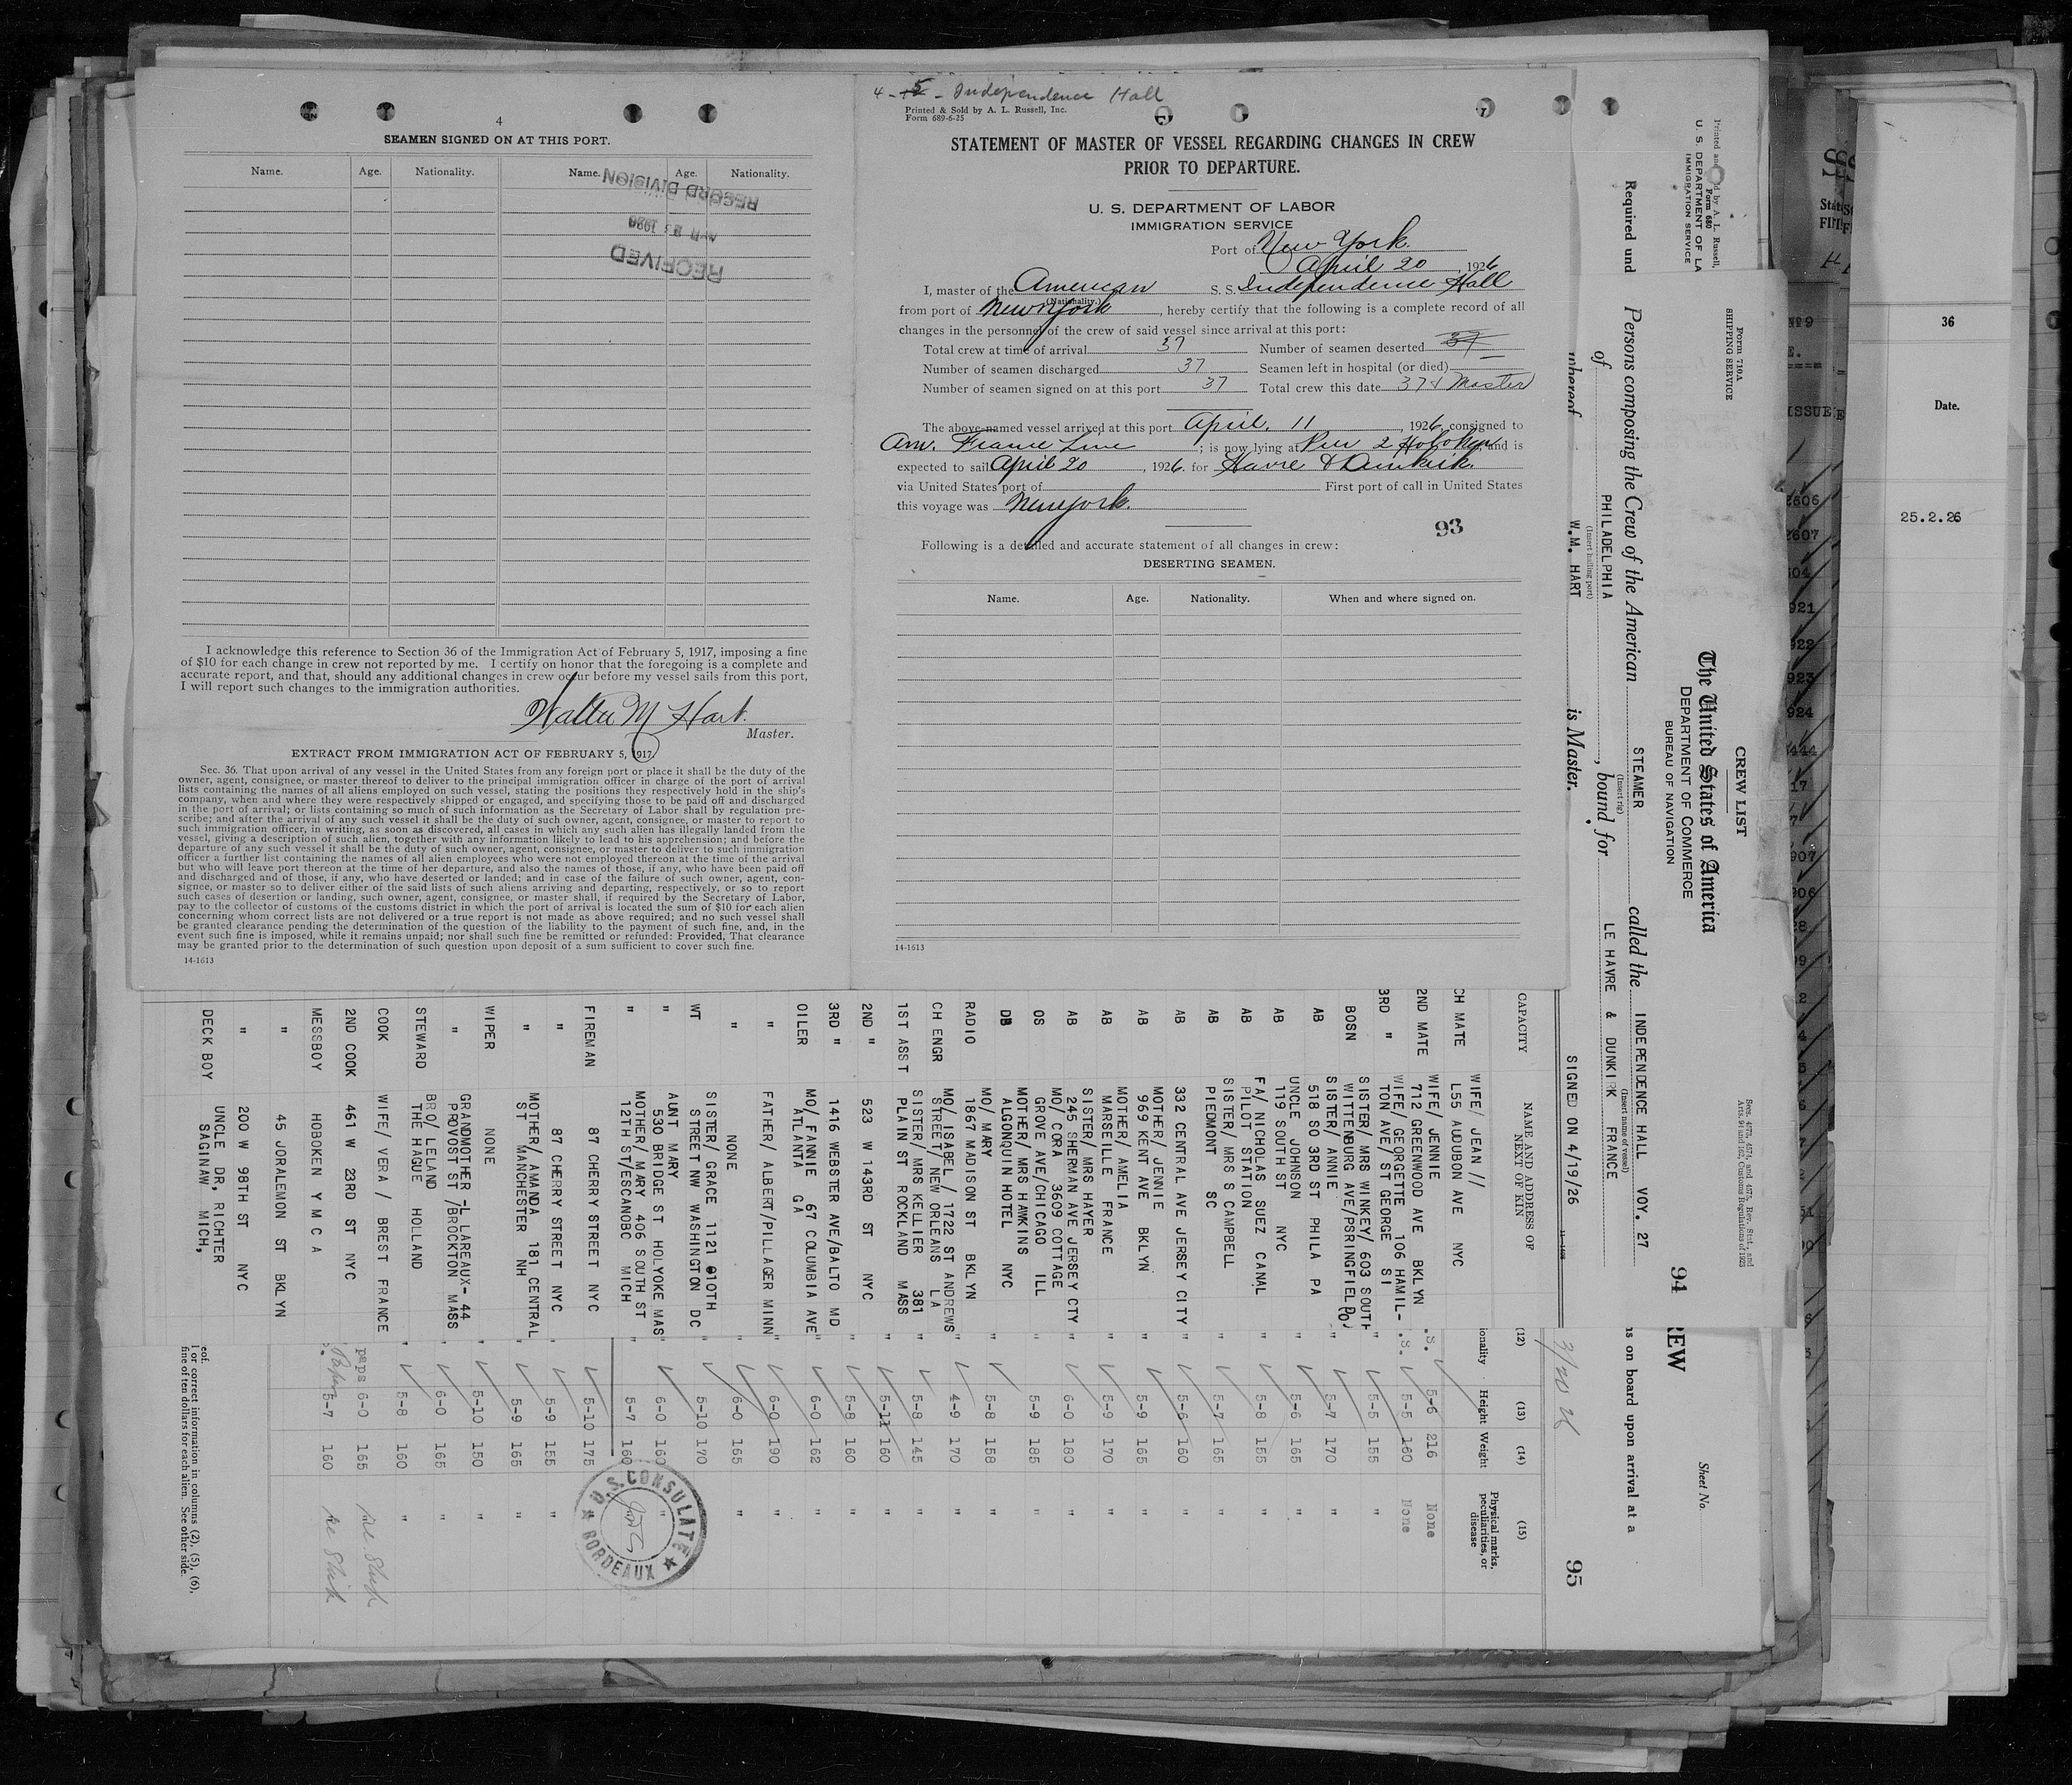 4
SEAMEN SIGNED ON AT THIS PORT.
Name. Age. Nationality. Name. Age. Nationality.
RECORD DIVISION
APR 23 1926
RECEIVED
I acknowledge this reference to Section 36 of the Immigration Act of February 5, 1917, imposing a fine
of $10 for each change in crew not reported by me. I certify on honor that the foregoing is a complete and
accurate report, and that, should any additional changes in crew occur before my vessel sails from this port,
I will report such changes to the immigration authorities.
Walter M Hart.
Master.
EXTRACT FROM IMMIGRATION ACT OF FEBRUARY 5, 1917.
Sec. 36. That upon arrival of any vessel in the United States from any foreign port or place it shall be the duty of the
owner, agent, consignee, or master thereof to deliver to the principal immigration officer in charge of the port of arrival
lists containing the names of all aliens employed on such vessel, stating the positions they respectively hold in the ship's
company, when and where they were respectively shipped or engaged, and specifying those to be paid off and discharged
in the port of arrival; or lists containing so much of such information as the Secretary of Labor shall by regulation pre-
scribe; and after the arrival of any such vessel it shall be the duty of such owner, agent, consignee, or master to report to
such immigration officer, in writing, as soon as discovered, all cases in which any such alien has illegally landed from the
vessel, giving a description of such alien, together with any information likely to lead to his apprehension; and before the
departure of any such vessel it shall be the duty of such owner, agent, consignee, or master to deliver to such immigration
officer a further list containing the names of all alien employees who were not employed thereon at the time of the arrival
but who will leave port thereon at the time of her departure, and also the names of those, if any, who have been paid off
and discharged and of those, if any, who have deserted or landed; and in case of the failure of such owner, agent, con-
signee, or master so to deliver either of the said lists of such aliens arriving and departing, respectively, or so to report
such cases of desertion or landing, such owner, agent, consignee, or master shall, if required by the Secretary of Labor,
pay to the collector of customs of the customs district in which the port of arrival is located the sum of $10 for each alien
concerning whom correct lists are not delivered or a true report is not made as above required; and no such vessel shall
be granted clearance pending the determination of the question of the liability to the payment of such fine, and, in the
event such fine is imposed, while it remains unpaid; nor shall such fine be remitted or refunded: Provided, That clearance
may be granted prior to the determination of such question upon deposit of a sum sufficient to cover such fine.
14-1613
4 - 5 - Independence Hall
Printed & Sold by A. L. Russell, Inc.
Form 689-6-25
STATEMENT OF MASTER OF VESSEL REGARDING CHANGES IN CREW
PRIOR TO DEPARTURE.
U. S. DEPARTMENT OF LABOR
IMMIGRATION SERVICE
Port of New York
April 20, 1926
I, master of the American S. S. Independence Hall
(Nationality.)
from port of New York, hereby certify that the following is a complete record of all
changes in the personnel of the crew of said vessel since arrival at this port:
Total crew at time of arrival 37 Number of seamen deserted 37
Number of seamen discharged 37 Seamen left in hospital (or died) —
Number of seamen signed on at this port 37 Total crew this date 37 & Master
The above-named vessel arrived at this port April. 11, 1926, consigned to
Am. France Line; is now lying at Pier 2 Hoboken, and is
expected to sail April 20, 1926. for Havre & Dunkirk.
via United States port of First port of call in United States
this voyage was New York.
93
Following is a detailed and accurate statement of all changes in crew:
DESERTING SEAMEN.
Name. Age. Nationality. When and where signed on.
14-1613
Form 710A
SHIPPING SERVICE
CREW LIST
Sec. 4573, 4574, and 4575, Rev. Stat., and
The United States of America
DEPARTMENT OF COMMERCE
BUREAU OF NAVIGATION
94
Persons composing the Crew of the American STEAMER called the INDEPENDENCE HALL VOY. 27
(Insert rig) (Insert name of vessel)
of PHILADELPHIA, bound for LE HAVRE & DUNKIRK FRANCE
(Insert hailing port)
whereof W.M. HART is Master. SIGNED ON 4/19/26
CAPACITY NAME AND ADDRESS OF NEXT OF KIN
CH MATE WIFE/ JEAN // L55 AUDUBON AVE NYC
2ND MATE WIFE/ JENNIE 712 GREENWOOD AVE BKLYN
3RD " WIFE/ GEORGETTE 106 HAMIL-TON AVE/ ST GEORGE SI
BOSN SISTER/ MRS WINKEY/ 603 SOUTH WITTENBURG AVE/PSRINGFIEL
AB SISTER/ ANNIE 518 SO 3RD ST PHILA PA
AB UNCLE JOHNSON 119 SOUTH ST NYC
AB FA/ NICHOLAS SUEZ CANAL PILOT STATION
AB SISTER/ MRS S CAMPBELL PIEDMONT SC
AB 332 CENTRAL AVE JERSEY CITY
AB MOTHER/ JENNIE 969 KENT AVE BKLYN
AB MOTHER/ AMELIA MARSEILLE FRANCE
AB SISTER/ MRS HAYER 245 SHERMAN AVE JERSEY CTY
OS MO/ CORA 3609 COTTAGE GROVE AVE/CHICAGO ILL
DB MOTHER/ MRS HAWKINS ALGONQUIN HOTEL NYC
RADIO MO/ MARY 1867 MADISON ST BKLYN
CH ENGR MO/ ISABEL / 1722 ST ANDREWS STREET/ NEW ORLEANS LA
1ST ASST SISTER/ MRS KELLIER 381 PLAIN ST ROCKLAND MASS
2ND " 523 W 143RD ST NYC
3RD " 1416 WEBSTER AVE/BALTO MD
OILER MO/ FANNIE 67 COLUMBIA AVE ATLANTA GA
" FATHER/ ALBERT/PILLAGER MINN
" NONE
WT SISTER/ GRACE 1121 10TH STREET NW WASHINGTON DC
" AUNT MARY 530 BRIDGE ST HOLYOKE MAS
" MOTHER/ MARY 406 SOUTH ST 12TH ST/ESCANOBC MICH
FIREMAN 87 CHERRY STREET NYC
" 87 CHERRY STREET NYC
" MOTHER/ AMANDA 181 CENTRAL ST MANCHESTER NH
WIPER NONE
" GRANDMOTHER -L LAREAUX- 44 PROVOST ST /BROCKTON MASS
STEWARD BRO/ LELAND THE HAGUE HOLLAND
COOK WIFE/ VERA / BREST FRANCE
2ND COOK 461 W 23RD ST NYC
MESSBOY HOBOKEN Y M C A
" 45 JORALEMON ST BKLYN
" 200 W 98TH ST NYC
DECK BOY UNCLE DR, RICHTER SAGINAW MICH,
Printed and Sold by A. L. Russell,
Form 680
U. S. DEPARTMENT OF LA
IMMIGRATION SERVICE
Required und
REW
Sheet No.
ns on board upon arrival at a
95
(12) (13) (14) (15)
ionality Height Weight Physical marks, peculiarities, or disease
.S. 5-6 216 None
.S. 5-5 160 None
" 5-5 155 "
" 5-7 170 "
" 5-6 165 "
" 5-8 155 "
" 5-7 165 "
" 5-6 160 "
" 5-9 165 "
" 5-9 170 "
" 6-0 180 "
" 5-9 185 "
" 5-8 158 "
" 4-9 170 "
" 5-8 145 "
" 5-11 160 "
" 5-8 160 "
" 6-0 162 "
" 6-0 190 "
" 6-0 165 "
" 5-10 170
" 6-0 160 "
" 5-7 160
" 5-10 175
" 5-9 155 "
" 5-9 165 "
" 5-10 150 "
" 6-0 165 "
" 5-8 160 "
6-0 165
5-7 160
U.S. CONSULATE
BORDEAUX
eof.
l or correct information in columns (2), (5), (6),
fine of ten dollars for each alien. See other side.
36
Date.
25.2.26
Nº 9
ISSUE